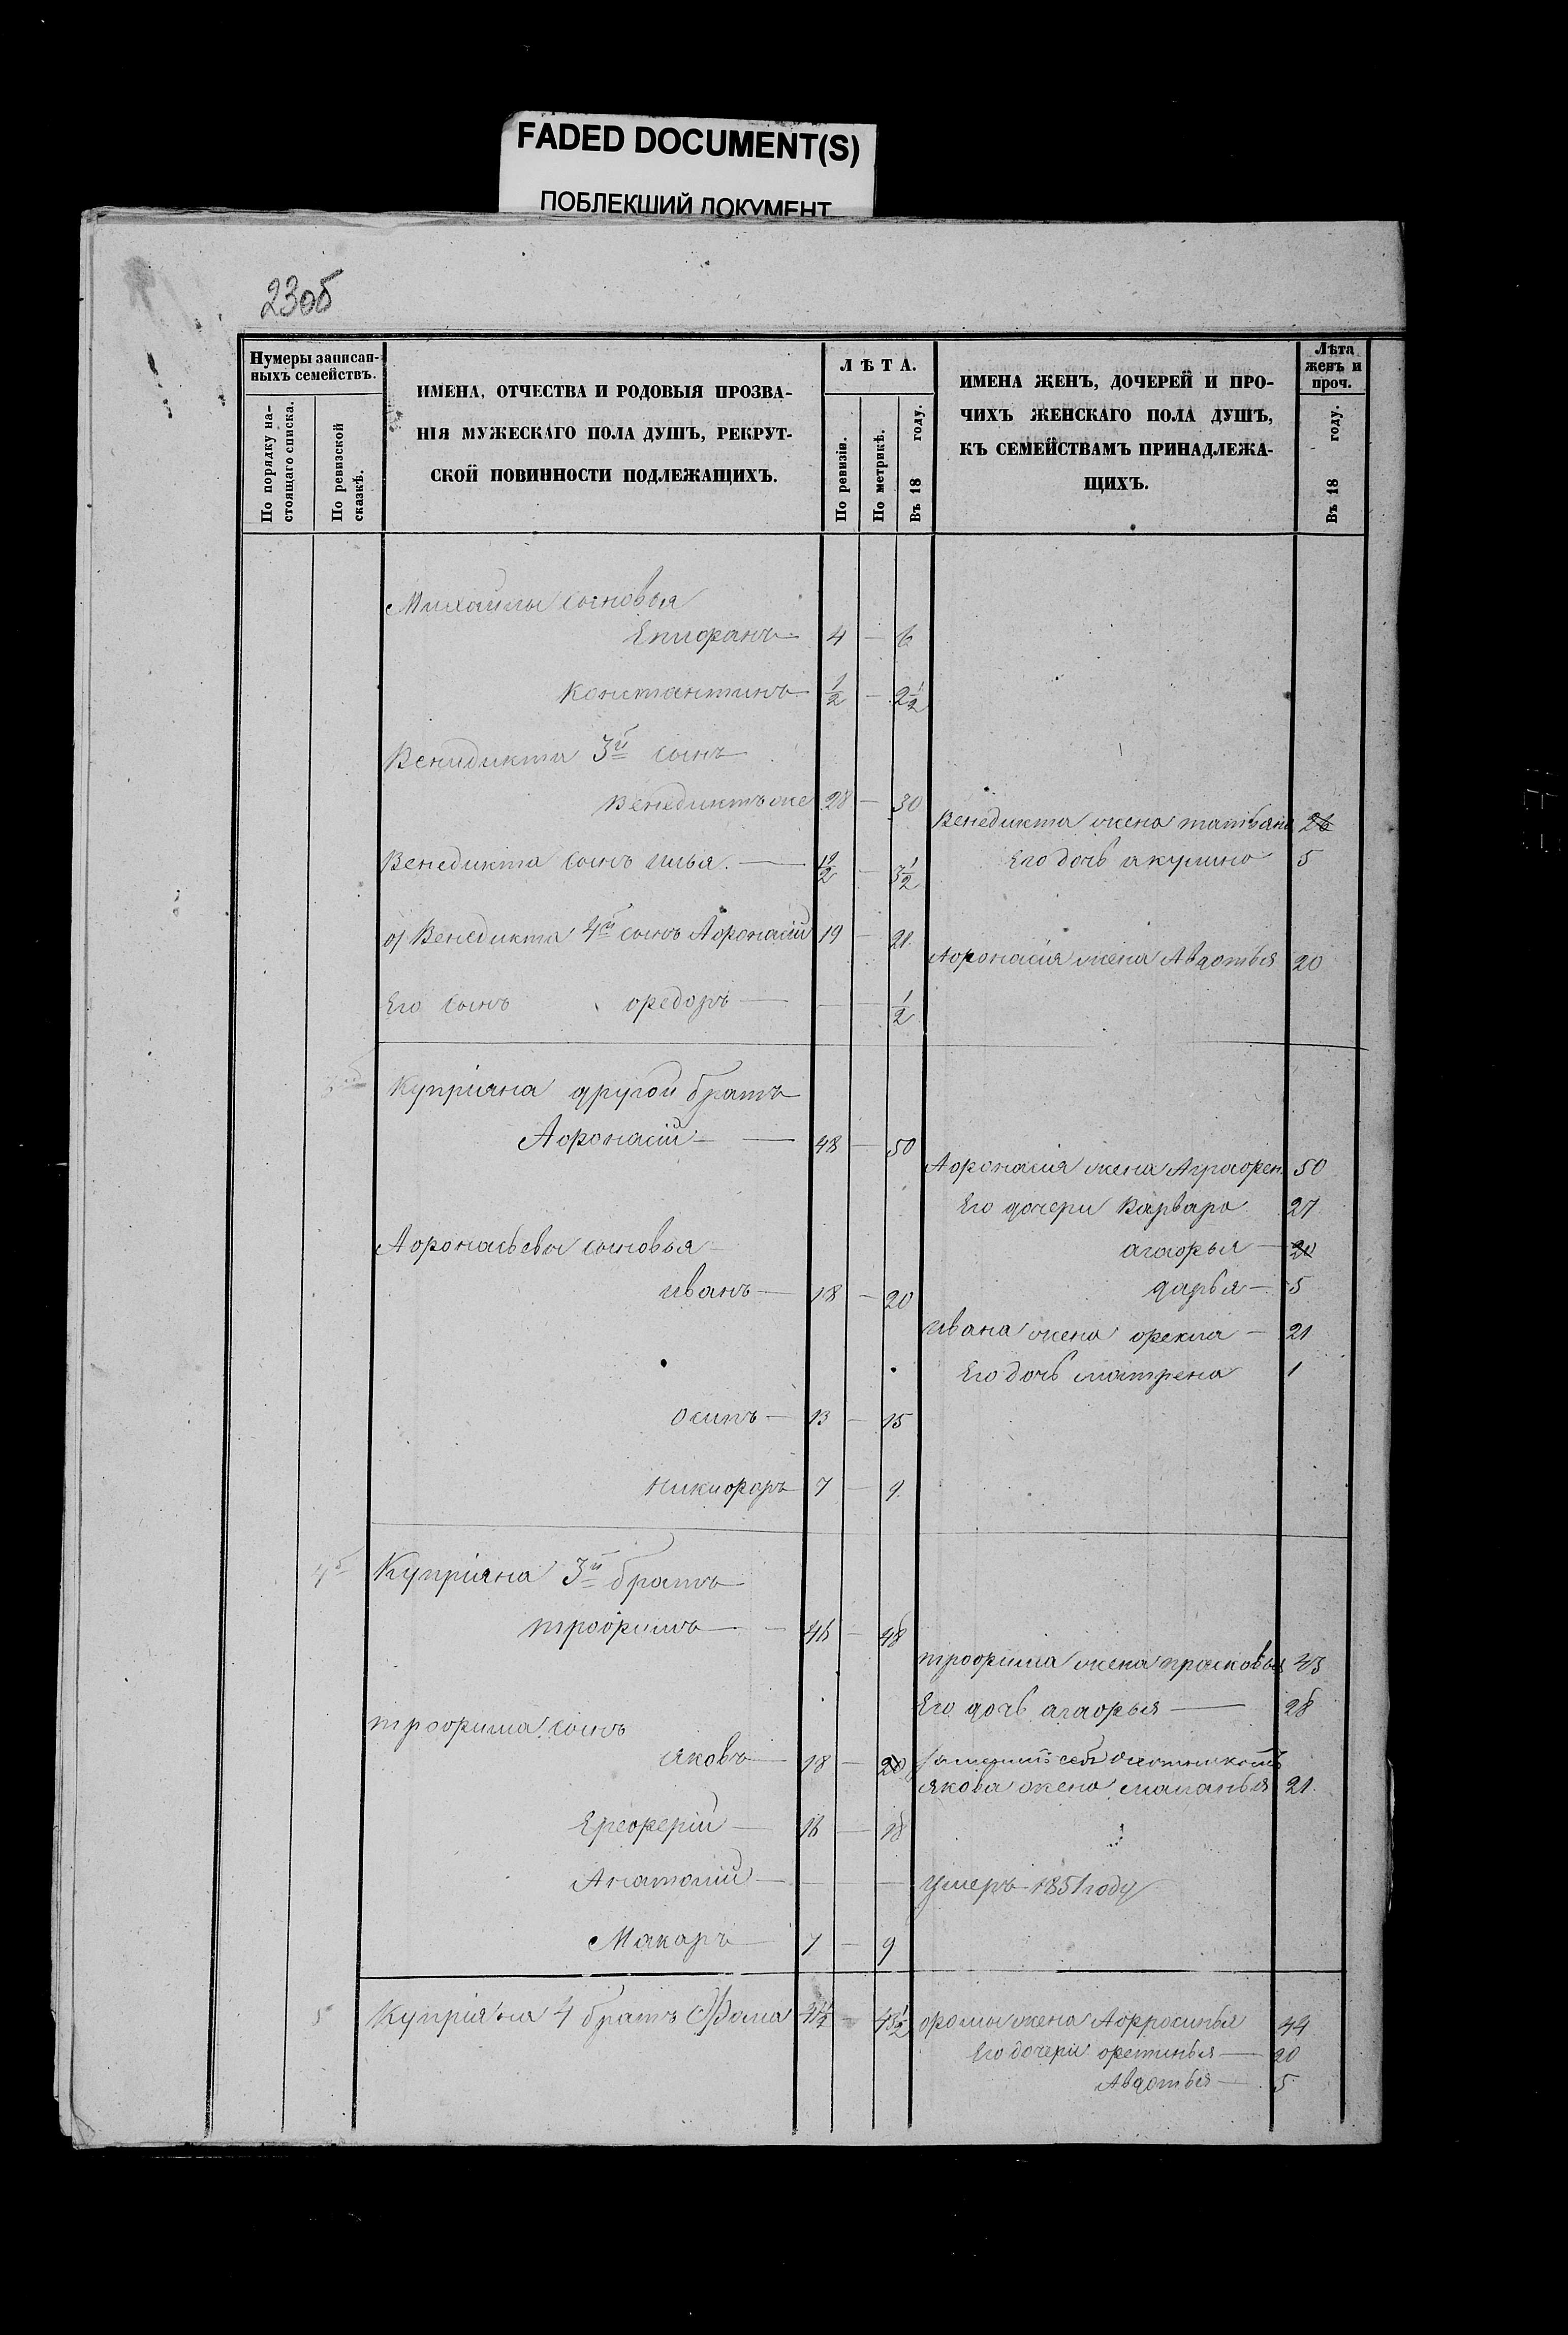 FADED DOCUMENT(S)
ПОБЛЕКШИЙ ДОКУМЕНТ
23об
Нумеры записан-
ныхъ семействъ.
По порядку на-
стоящаго списка.
По ревизской
сказкѣ.
ИМЕНА, ОТЧЕСТВА И РОДОВЫЯ ПРОЗВА-
НІЯ МУЖЕСКАГО ПОЛА ДУШЪ, РЕКРУТ-
СКОЙ ПОВИННОСТИ ПОДЛЕЖАЩИХЪ.
ЛѢТА.
По ревизіи.
По метрикѣ.
Въ 18 году.
ИМЕНА ЖЕНЪ, ДОЧЕРЕЙ И ПРО-
ЧИХЪ ЖЕНСКАГО ПОЛА ДУШЪ,
КЪ СЕМЕЙСТВАМЪ ПРИНАДЛЕЖА-
ЩИХЪ.
Лѣта
женъ и
проч.
Въ 18 году.
Михаилы сыновья
Епифанъ 4 — 6
Константинъ 1/2 — 2 1/2
Венидикта 3й сынъ
Венедиктъ же 28 — 30
Венедикта жена татьяна 26
Венедикта сынъ илья. — 1 1/2 — 3 1/2
Его дочь акулина 5
Венедикта 4й сынъ Афонасій 19 — 21
Афонасія жена Авдотья 20
Его сынъ федоръ — — — 1/2
Купріяна другой братъ
Афонасій — 48 — 50
Афонасія жена Аграфен. 50
Его дочери Варвара 27
Афонасьевы сыновья
агафья — 20
иванъ — 18 — 20
дарья — 5
ивана жена фекла — 21
Его дочь матрена 1
осипъ — 13 — 15
никифоръ 7 — 9
4й Купріяна 3й братъ
трофимъ — 46 — 48
трофима жена прасковья 43
Его дочь агафья — 28
трофима сынъ
яковъ — 18 — 20
якова жена маланья 21.
Ероферій — 16 — 18
Анатолій — — —
умеръ 1851 году
Макаръ — 7 — 9
5 Купріяна 4 братъ Фома 41 1/2 — 43 1/2
фомы жена Афросинья 44
Его дочери фетинья — 20
Авдотья — 5